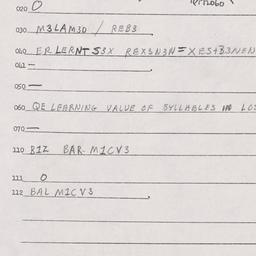 020 O
030 M3LAM3D / REB3
040 ER LERNT S3X REX3N3N = XES+B3NEN
041 —
050 —
060 QE LEARNING VALUE OF SYLLABLES LOS
070 —
110 B1Z BAR M1CV3
111 O
112 BAL M1CV3